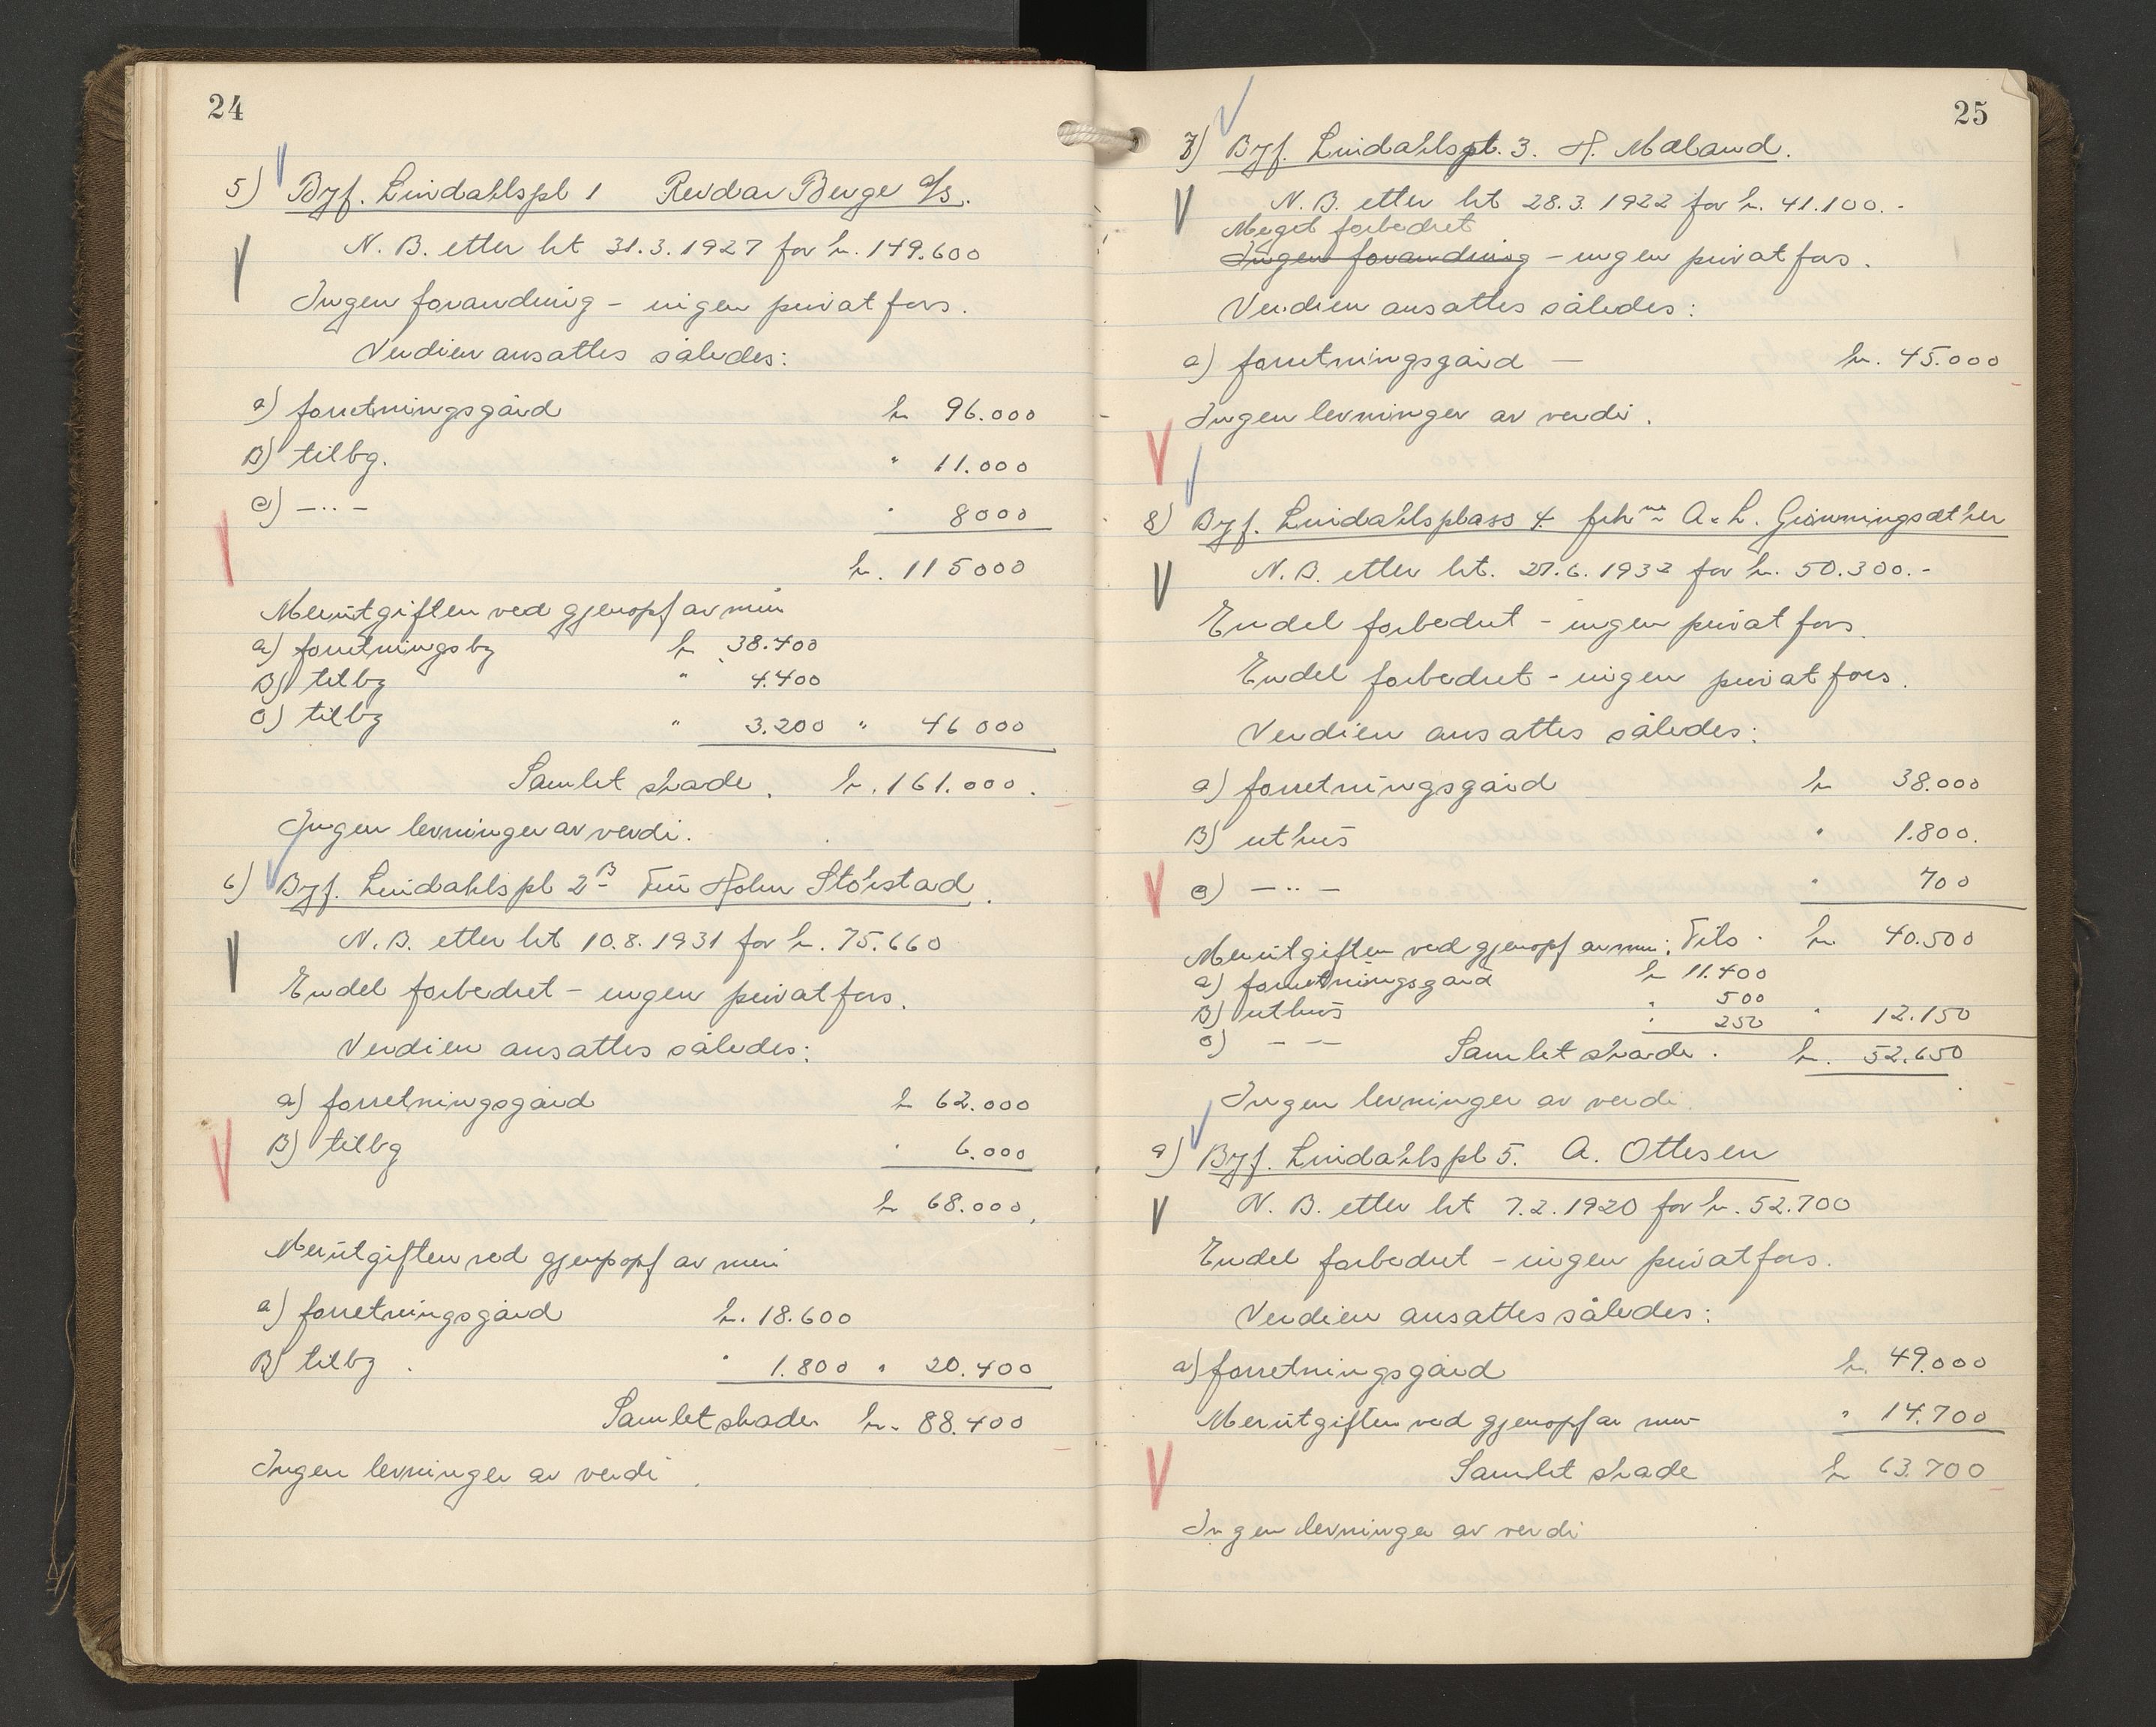 24
5) Byf. Lindahlspl 1 Reidar Berge A/S.
N. B. etter bt 31.3.1927 for kr. 149.600
Ingen forandring - ingen privat fors.
Verdien ansattes således:
a) forretningsgård kr 96.000
B) tilbg. " 11.000
c) -"- " 8000
kr. 115000
Merutgiften ved gjenopf av mur
a) forretningsbg kr 38.400
B) tilbg " 4.400
c) tilbg " 3.200 " 46 000
Samlet skade. kr. 161.000.
Ingen levninger av verdi.
6) Byf. Lindahlspl 2B Holm Størstad.
N. B. etter bt 10.8.1931 for kr. 75.660
Endel forbedret - ingen privat fors.
Verdien ansattes således:
a) forretningsgård kr 62.000
B) tilbg " 6.000
kr 68.000,
Merutgiften ved gjenopf av mur
a) forretningsgård kr. 18.600
B) tilbg. " 1.800 " 20.400
Samlet skade kr. 88.400
Ingen levninger av verdi.
25
7) Byf. Lindahlspl. 3. H. Mæland.
N. B. etter bt 28.3.1922 for kr. 41.100.-
Meget forbedret
Ingen forandring - ingen privat fors.
Verdien ansattes således:
a) forretningsgård — kr. 45.000
Ingen levninger av verdi.
8) Byf. Lindahlsplass 4 frkne A. & L. Grønningsæther
N. B. etter bt. 27.6.1932 for kr. 50.300.-
Endel forbedret - ingen privat fors.
Endel forbedret - ingen privat fors.
Verdien ansattes således:
a) forretningsgård kr 38.000
B) uthus " 1.800.
c) -"- " 700
Merutgiften ved gjenopf av mur: Tils. kr. 40.500
a) forretningsgård kr 11.400
B) uthus " 500
c) - — " 250 " 12.150
Samlet skade. kr. 52.650
Ingen levninger av verdi.
9) Byf. Lindahlspl 5. A. Ottesen
N. B. etter bt 7.2.1920 for kr. 52.700
Endel forbedret - ingen privat fors.
Verdien ansattes således:
a) forretningsgård kr. 49.000
Merutgiften ved gjenopf av mur " 14.700
Samlet skade kr 63.700
Ingen levninger av verdi